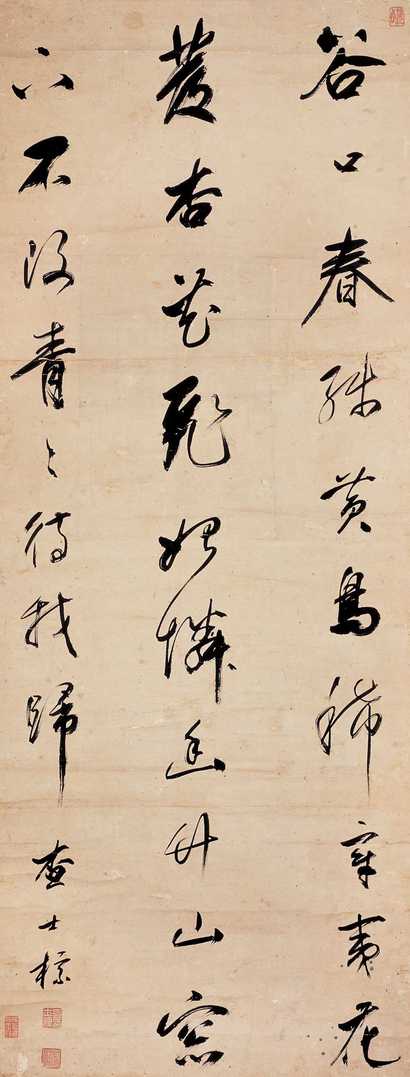 谷口春殘黃鳥稀辛夷花
發杏花飛始憐幽竹山窓
下不改青〻待我歸
查士標